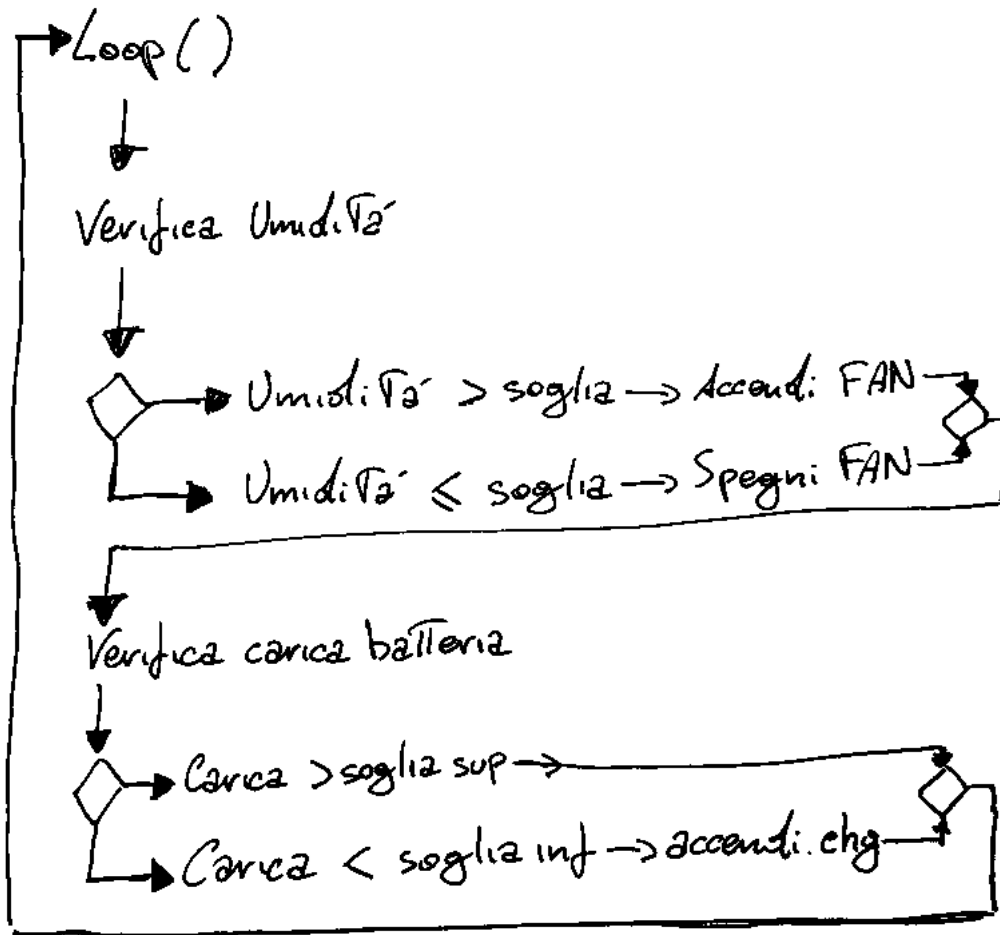 Loop ()
Verifica Umidità
Umidità > soglia → Accendi FAN
Umidità ≤ soglia → Spegni FAN
Verifica carica batteria
Carica > soglia sup →
Carica < soglia inf → accendi.chg